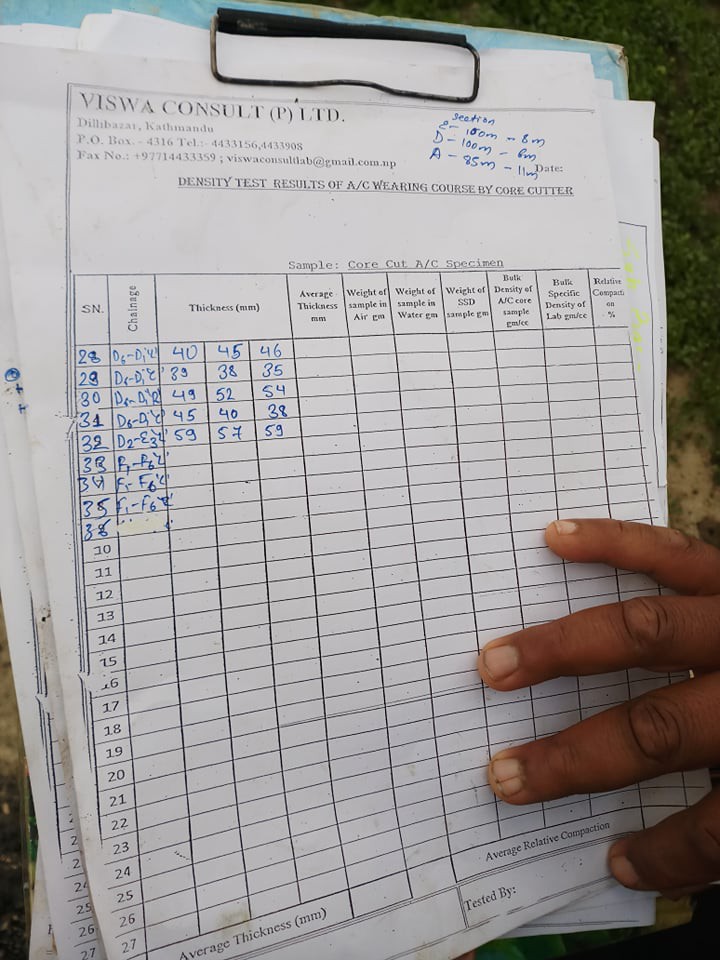 VISWA CONSULT (P) LTD.
Dillibazar, Kathmandu
P.O. Box. - 4316 Tel.:- 4433156,4433908
Fax No.: +97714433359 ; viswaconsultlab@gmail.com.np
Section
100m - 8m
D - 100m - 6m
A - 85m - 11m
Date:
DENSITY TEST RESULTS OF A/C WEARING COURSE BY CORE CUTTER
Sample: Core Cut A/C Specimen
SN. Chainage Thickness (mm) Average Thickness mm Weight of sample in Air gm Weight of sample in Water gm Weight of SSD sample gm Bulk Density of A/C core sample gm/cc Bulk Specific Density of Lab gm/cc Relative Compaction %
28 40 45 46
29 39 38 35
30 49 52 54
31 45 40 38
32 59 57 59
33
34
35
36
10
11
12
13
14
15
16
17
18
19
20
21
22
23
24
25
26
27
Average Relative Compaction
Average Thickness (mm)
Tested By: